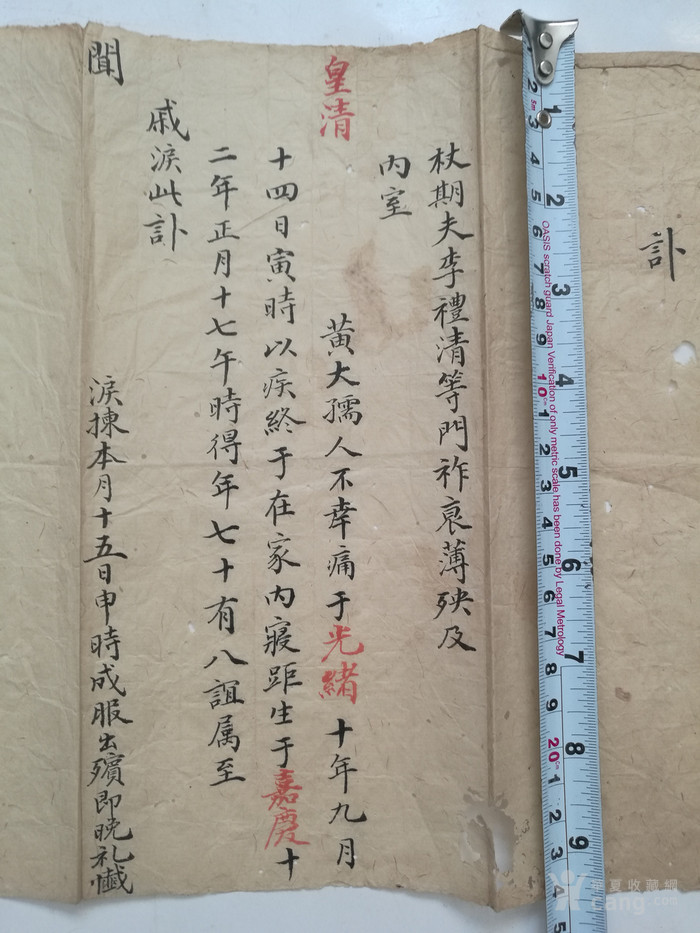 訃
杖期夫李禮清等門祚衰薄殃及
內室
皇清
黃大孺人不幸痛于光緒十年九月
十四日寅時以疾終于在家內寢距生于嘉慶十
二年正月十七午時得年七十有八誼属至
戚淚此訃
聞
淚揀本月十五日申時成服出殯即晚礼懴
OASIS scratch guard Japan Verification of only metric scale has been done by Legal Metrology
1 2 3 4 5 6 7 8 9
1 2 3 4 5 6 7 8 9 10 1 2 3 4 5 6 7 8 9 20 1 2 3 4 5
华夏收藏網
Cang.com